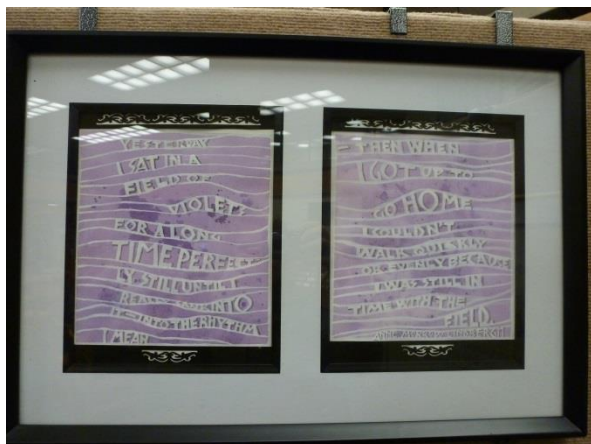 YESTERDAY
I SAT IN A
FIELD OF
VIOLETS
FOR A LONG
TIME PERFECT
LY STILL UNTIL I
REALLY INTO
IT – INTO THE RHYTHM
I MEAN
– THEN WHEN
I GOT UP TO
GO HOME
I COULDN'T
WALK QUICKLY
OR EVENLY BECAUSE
I WAS STILL IN
TIME WITH THE
FIELD.
ANNE MORROW LINDBERGH